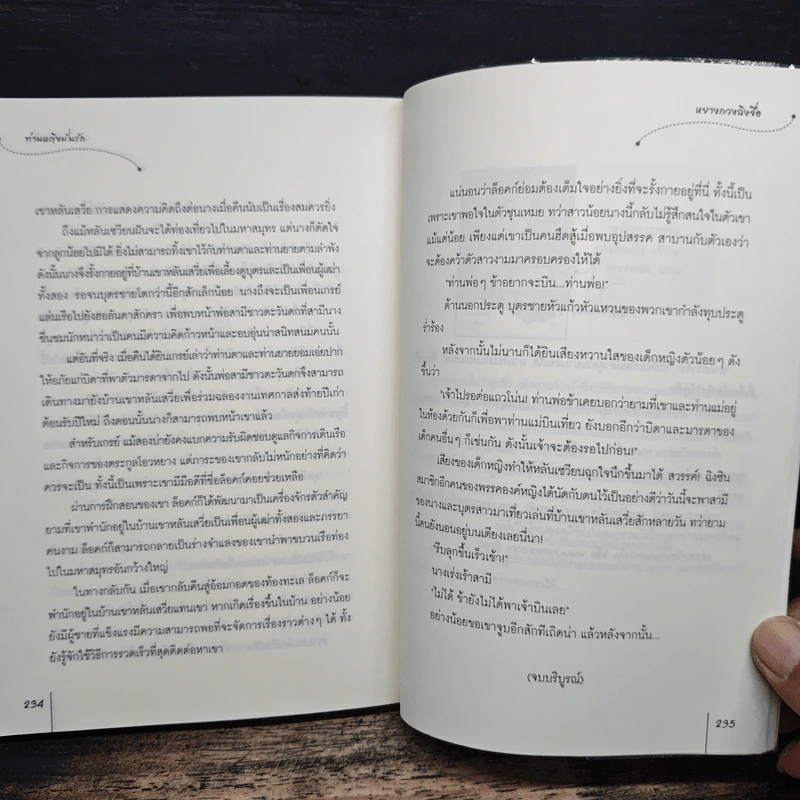 ท่านหญิงมนั่มรัก
เขาหลันเสวี่ย การแสดงความคิดถึงต่อนางเมื่อคืนนับเป็นเรื่องสมควรยิ่ง
ถึงแม้หลันเซวียนฝันจะได้ท่องเที่ยวไปในมหาสมุทร แต่นางก็ตัดใจ
จากลูกน้อยไปมิได้ ยิ่งไม่สามารถทิ้งเขาไว้กับท่านตาและท่านยายตามลำพัง
ดังนั้นนางจึงรั้งกายอยู่ที่บ้านเขาหลันเสวี่ยเพื่อเลี้ยงดูบุตรและเป็นเพื่อนผู้เฒ่า
ทั้งสอง รอจนบุตรชายโตกว่านี้อีกสักเล็กน้อย นางถึงจะเป็นเพื่อนเกรย์
แล่นเรือไปยังฮอลันดาสักครา เพื่อพบหน้าพ่อสามีชาวตะวันตกที่สามีนาง
ชื่นชมนักหนาว่าเป็นคนมีความคิดก้าวหน้าและอบอุ่นน่าสนิทสนมคนนั้น
แต่อันที่จริง เมื่อคืนได้ยินเกรย์เล่าว่าท่านตาและท่านยายยอมเอ่ยปาก
ให้อภัยแก่บิดาที่พาตัวมารดาจากไป ดังนั้นพ่อสามีชาวตะวันตกจึงสามารถ
เดินทางมายังบ้านเขาหลันเสวี่ยเพื่อร่วมฉลองงานเทศกาลส่งท้ายปีเก่า
ต้อนรับปีใหม่ ถึงตอนนั้นนางก็สามารถพบหน้าเขาแล้ว
สำหรับเกรย์ แม้สองบ่ายังคงแบกความรับผิดชอบดูแลกิจการเดินเรือ
และกิจการของตระกูลโอวหยาง แต่ภาระของเขากลับไม่หนักอย่างที่คิดว่า
ควรจะเป็น ทั้งนี้เป็นเพราะเขามีมือดีที่ชื่อล็อคก์คอยช่วยเหลือ
ผ่านการฝึกสอนของเขา ล็อคก์ก็ได้พัฒนามาเป็นเครื่องจักรตัวสำคัญ
ยามที่เขาพำนักอยู่ในบ้านเขาหลันเสวี่ยเป็นเพื่อนผู้เฒ่าทั้งสองและภรรยา
คนงาม ล็อคก์ก็สามารถกลายเป็นร่างจำแลงของเขานำพาขบวนเรือท่อง
ไปในมหาสมุทรอันกว้างใหญ่
ในทางกลับกัน เมื่อเขากลับคืนสู่อ้อมกอดของท้องทะเล ล็อคก์ก็จะ
พำนักอยู่ในบ้านเขาหลันเสวี่ยแทนเขา หากเกิดเรื่องขึ้นในบ้าน อย่างน้อย
ยังมีผู้ชายที่แข็งแรงมีความสามารถพอที่จะจัดการเรื่องราวต่างๆ ได้ ทั้ง
ยังรู้จักใช้วิธีการรวดเร็วที่สุดติดต่อหาเขา
234
หยางกวงฉิงจื่อ
แน่นอนว่าล็อคก์ย่อมต้องเต็มใจอย่างยิ่งที่จะรั้งกายอยู่ที่นี่ ทั้งนี้เป็น
เพราะเขาพอใจในตัวชุนเหมย ทว่าสาวน้อยนางนี้กลับไม่รู้สึกสนใจในตัวเขา
แม้แต่น้อย เพียงแต่เขาเป็นคนฮึดสู้เมื่อพบอุปสรรค สาบานกับตัวเองว่า
จะต้องคว้าตัวสาวงามมาครอบครองให้ได้
"ท่านพ่อๆ ข้าอยากจะบิน...ท่านพ่อ!"
ด้านนอกประตู บุตรชายหัวแก้วหัวแหวนของพวกเขากำลังทุบประตู
ร่ำร้อง
หลังจากนั้นไม่นานก็ได้ยินเสียงหวานใสของเด็กหญิงตัวน้อยๆ ดัง
ขึ้นว่า
"เจ้าไปรอต่อแถวโน่น! ท่านพ่อข้าเคยบอกว่ายามที่เขาและท่านแม่อยู่
ในห้องด้วยกันก็เพื่อพาท่านแม่บินเที่ยว ยังบอกอีกว่าบิดาและมารดาของ
เด็กคนอื่นๆ ก็เช่นกัน ดังนั้นเจ้าจะต้องรอไปก่อน!"
เสียงของเด็กหญิงทำให้หลันเซวียนฉุกใจนึกขึ้นมาได้ สวรรค์! ฉิงซิน
สมาชิกอีกคนของพรรคองค์หญิงได้นัดกับตนไว้เป็นอย่างดีว่าวันนี้จะพาสามี
ของนางและบุตรสาวมาเที่ยวเล่นที่บ้านเขาหลันเสวี่ยสักหลายวัน ทว่ายาม
นี้ตนยังนอนอยู่บนเตียงเลยนี่นา!
"รีบลุกขึ้นเร็วเข้า!"
นางเร่งเร้าสามี
"ไม่ได้ ข้ายังไม่ได้พาเจ้าบินเลย"
อย่างน้อยขอเขาจูบอีกสักทีเถิดน่า แล้วหลังจากนั้น...
(จบบริบูรณ์)
235